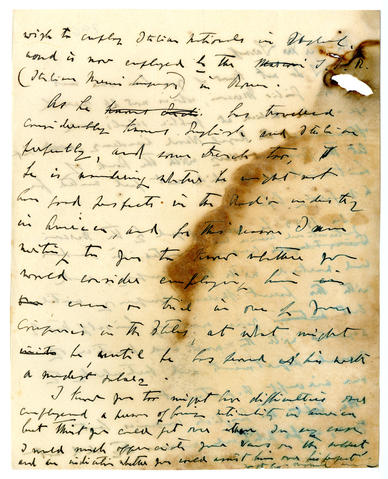 wish to employ Italian nationals in
and is now employed by the I.B.R.
(Italian ) in Rome.
As he has travelled
considerably, knows English and Italian
perfectly, and some French too,
he is wondering whether he might not
have good prospects in the Radio industry
in America, and for this reason I am
writing to you to know whether you
would consider employing him in
even on trial in one of your
Companies in the States, at what might
be, until he has proved his worth
a modest salary.
I know you too might have difficulties over
employing a person of foreign nationality in America
but think you could get over them. In any case
I would much appreciate your views on the subject
and an indication whether you could assist him over his project.